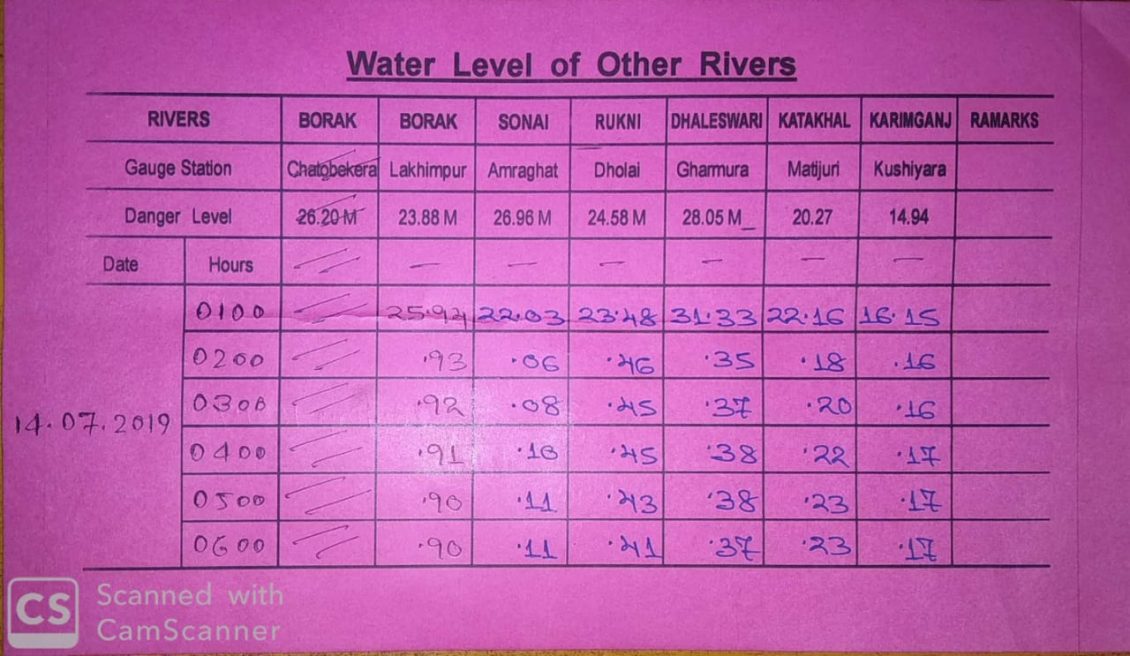 Water Level of Other Rivers
RIVERS BORAK BORAK SONAI RUKNI DHALESWARI KATAKHAL KARIMGANJ RAMARKS
Gauge Station Chatobekera Lakhimpur Amraghat Dholai Gharmura Matijuri Kushiyara
Danger Level 26.20 M 23.88 M 26.96 M 24.58 M 28.05 M_ 20.27 14.94
Date Hours — — — — — —
0100 25.94 22.03 23.48 31.33 22.16 16.15
0200 .93 .06 .46 .35 .18 .16
0300 .92 .08 .45 .37 .20 .16
14.07.2019
0400 .91 .10 .45 .38 .22 .17
0500 .90 .11 .43 .38 .23 .17
0600 .90 .11 .41 .37 .23 .17
CS Scanned with
CamScanner